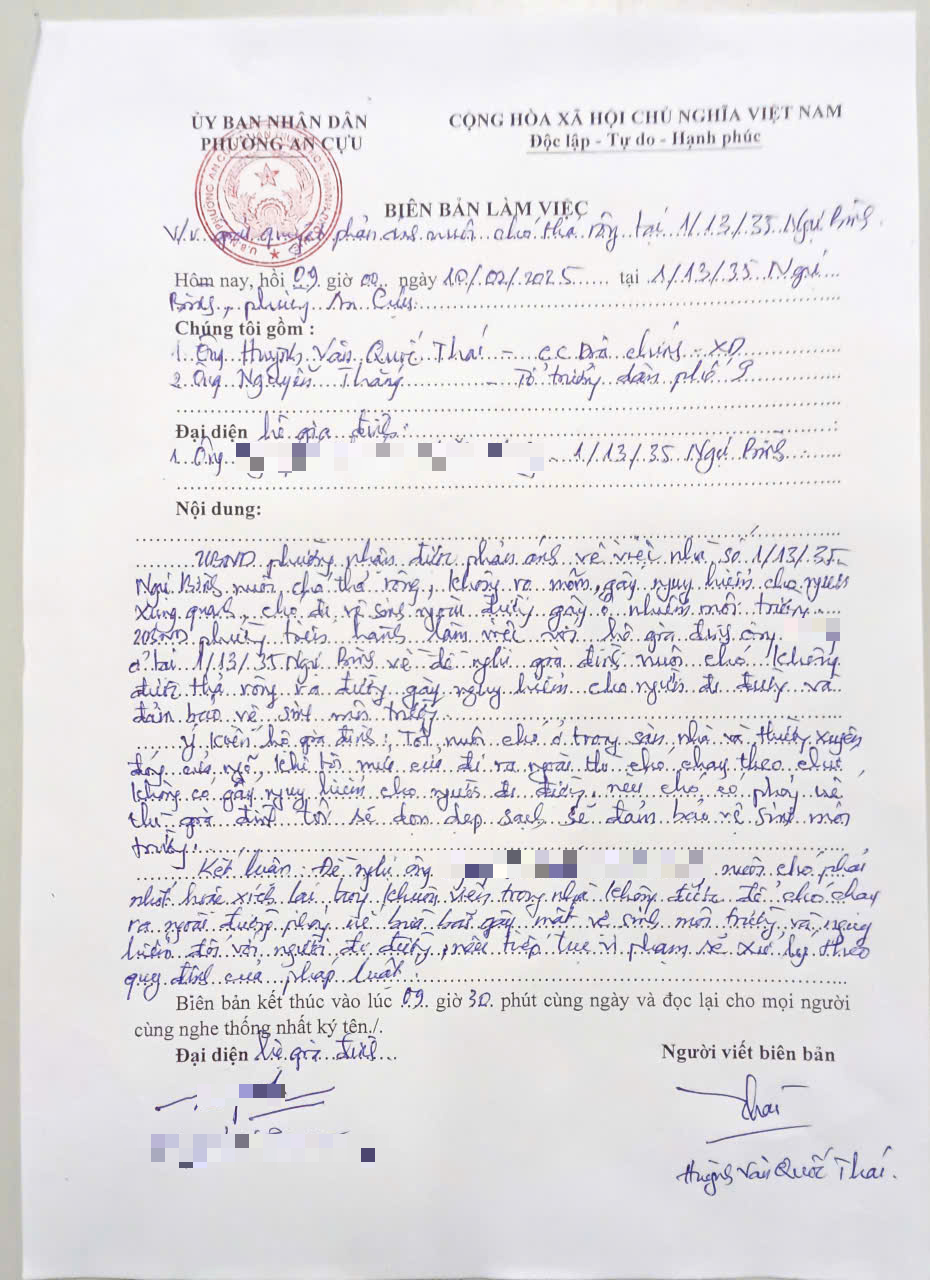 ỦY BAN NHÂN DÂN
PHƯỜNG AN CỰU
CỘNG HÒA XÃ HỘI CHỦ NGHĨA VIỆT NAM
Độc lập - Tự do - Hạnh phúc
BIÊN BẢN LÀM VIỆC
V/v giải quyết phản ánh nuôi chó thả rông tại 1/13/35 Ngự Bình.
Hôm nay, hồi 09 giờ 00 ngày 10/02/2025 tại 1/13/35 Ngự
Bình, phường An Cựu.
Chúng tôi gồm :
1. Ông Huỳnh Văn Quốc Thái - CC Địa chính - XD
2. Ông Nguyễn Thắng - Tổ trưởng dân phố 9
Đại diện hộ gia đình:
1. Ông - 1/13/35 Ngự Bình
Nội dung:
UBND phường nhận được phản ánh về việc nhà số 1/13/35
Ngự Bình nuôi chó thả rông, không rọ mõm, gây nguy hiểm cho người
xung quanh, cho đi vệ sinh ngoài đường gây ô nhiễm môi trường.
UBND phường tiến hành làm việc với hộ gia đình ông
ở tại 1/13/35 Ngự Bình về đề nghị gia đình nuôi chó không
được thả rông ra đường gây nguy hiểm cho người đi đường và
đảm bảo vệ sinh môi trường.
Ý kiến hộ gia đình: Tôi nuôi chó ở trong sân, nhà và thường xuyên
đóng cửa ngõ, khi tôi mở cửa đi ra ngoài thì chó chạy theo chứ
không có gây nguy hiểm cho người đi đường, nếu chó có phóng uế
thì gia đình tôi sẽ dọn dẹp sạch sẽ đảm bảo vệ sinh môi
trường.
Kết luận: Đề nghị ông nuôi chó phải
nhốt hoặc xích lại trong khuôn viên trong nhà không được để chó chạy
ra ngoài đường phóng uế bừa bãi gây mất vệ sinh môi trường và nguy
hiểm đối với người đi đường, nếu tiếp tục vi phạm sẽ xử lý theo
quy định của pháp luật.
Biên bản kết thúc vào lúc 09 giờ 30 phút cùng ngày và đọc lại cho mọi người
cùng nghe thống nhất ký tên./.
Đại diện hộ gia đình
Người viết biên bản
Thái
Huỳnh Văn Quốc Thái.